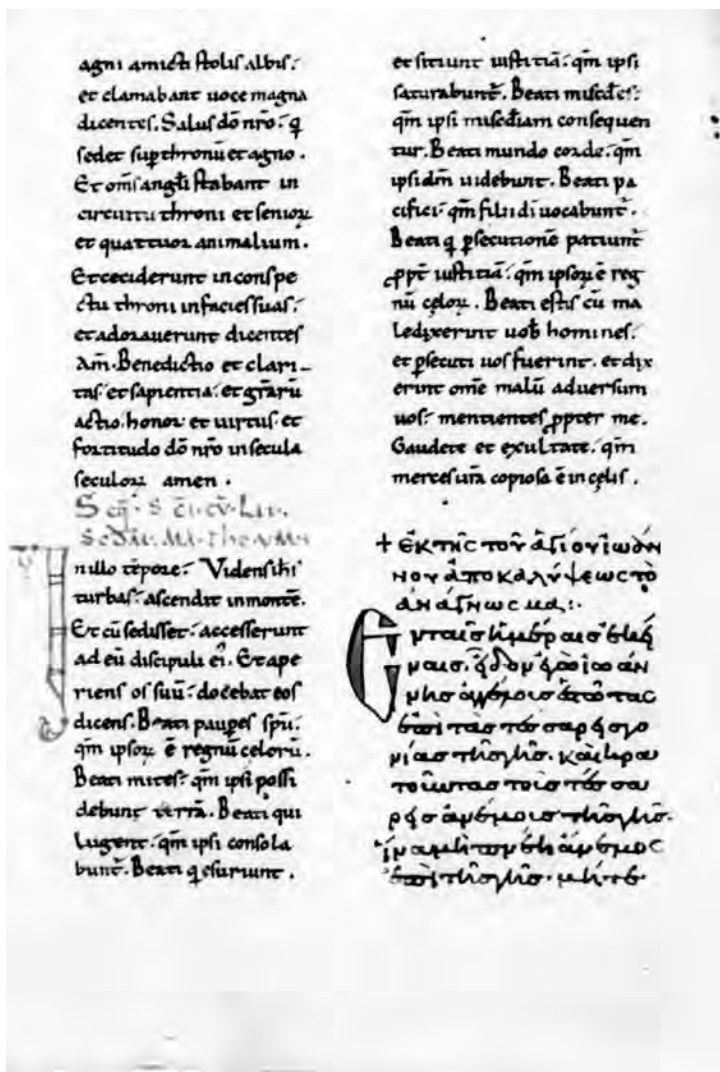 agni amicti stolis albis:
et clamabant uoce magna
dicentes. Salus dō nr̄o: q
sedet sup thronū et agno.
Et oms̄ angłi stabant in
circuitu throni et senioꝝ
et quattuor animalium.
Et ceciderunt in conspe
ctu throni in facies suas:
et adorauerunt dicentes
Am̄. Benedictio et clari-
tas: et sapientia: et gr̄arū
actio. honor et uirtus. et
fortitudo dō nr̄o in secula
seculoꝝ amen.
n illo tēpore: Videns ih̄s
turbas: ascendit in montē.
Et cū sedisset: accesserunt
ad eū discipuli ei. Et ape
riens os suū: docebat eos
dicens. Beati paupes sp̄u:
qm̄ ipsoꝝ ē regnū celorū.
Beati mites: qm̄ ipsi possi
debunt terrā. Beati qui
lugent: qm̄ ipsi consola
bunt̄. Beati q esuriunt.
et sitiunt iustitiā: qm̄ ipsi
saturabunt̄. Beati misćdes:
qm̄ ipsi misćdiam consequen
tur. Beati mundo corde: qm̄
ipsi dm̄ uidebunt. Beati pa
cifici: qm̄ filii di uocabunt̄.
Beati q ꝑsecutionē patiunt̄
ꝓpt̄ iustitiā: qm̄ ipsoꝝ ē reg
nū celoꝝ. Beati estis cū ma
ledixerint uob̄ homines:
et ꝑsecuti uos fuerint. et dix
erint ome̅ malū adversum
uos: mentientes ꝓpter me.
Gaudete et exultate: qm̄
merces ur̄a copiosa ē in celis.
+ ἐκ τῆς τοῦ ἁγίου ἰωάν
νου ἀποκαλύψεως τὸ
ἀνάγνωσμα:.
Ἐν ταῖς ἡμέραις ἐκεί
ναις. εἶδον ἐγὼ ἰωάν
νης ἀγγέλους ἑστῶτας
ἐπὶ τὰς τέσσαρες γο
νίας τῆς γῆς. καὶ κρα
τοῦντας τοὺς τέσσα
ρες ἀνέμους τῆς γῆς.
ἵνα μὴ πνέη ἄνεμος
ἐπὶ τῆς γῆς. μήτε